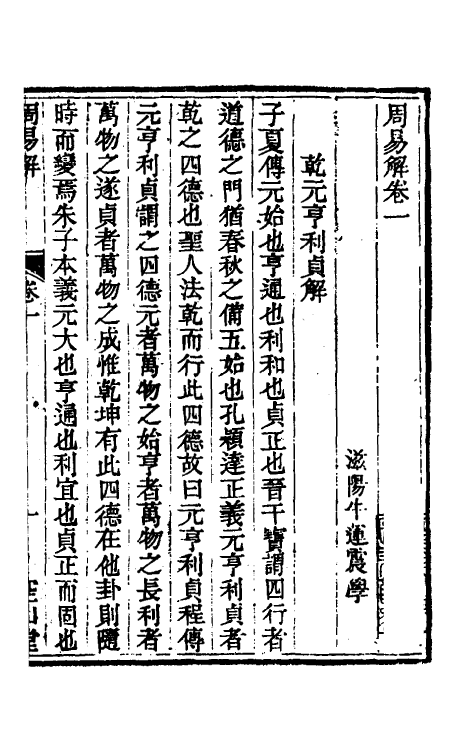 周易解卷一
滋陽牛運震學
乾元亨利貞解
子夏傳元始也亨通也利和也貞正也晉干寶謂四行者
道德之門猶春秋之備五始也孔穎達正義元亨利貞者
乾之四德也聖人法乾而行此四德故曰元亨利貞程傳
元亨利貞謂之四德元者萬物之始亨者萬物之長利者
萬物之遂貞者萬物之成惟乾坤有此四德在他卦則隨
時而變焉朱子本義元大也亨通也利宜也貞正而固也
周易解
卷一
一
空山堂